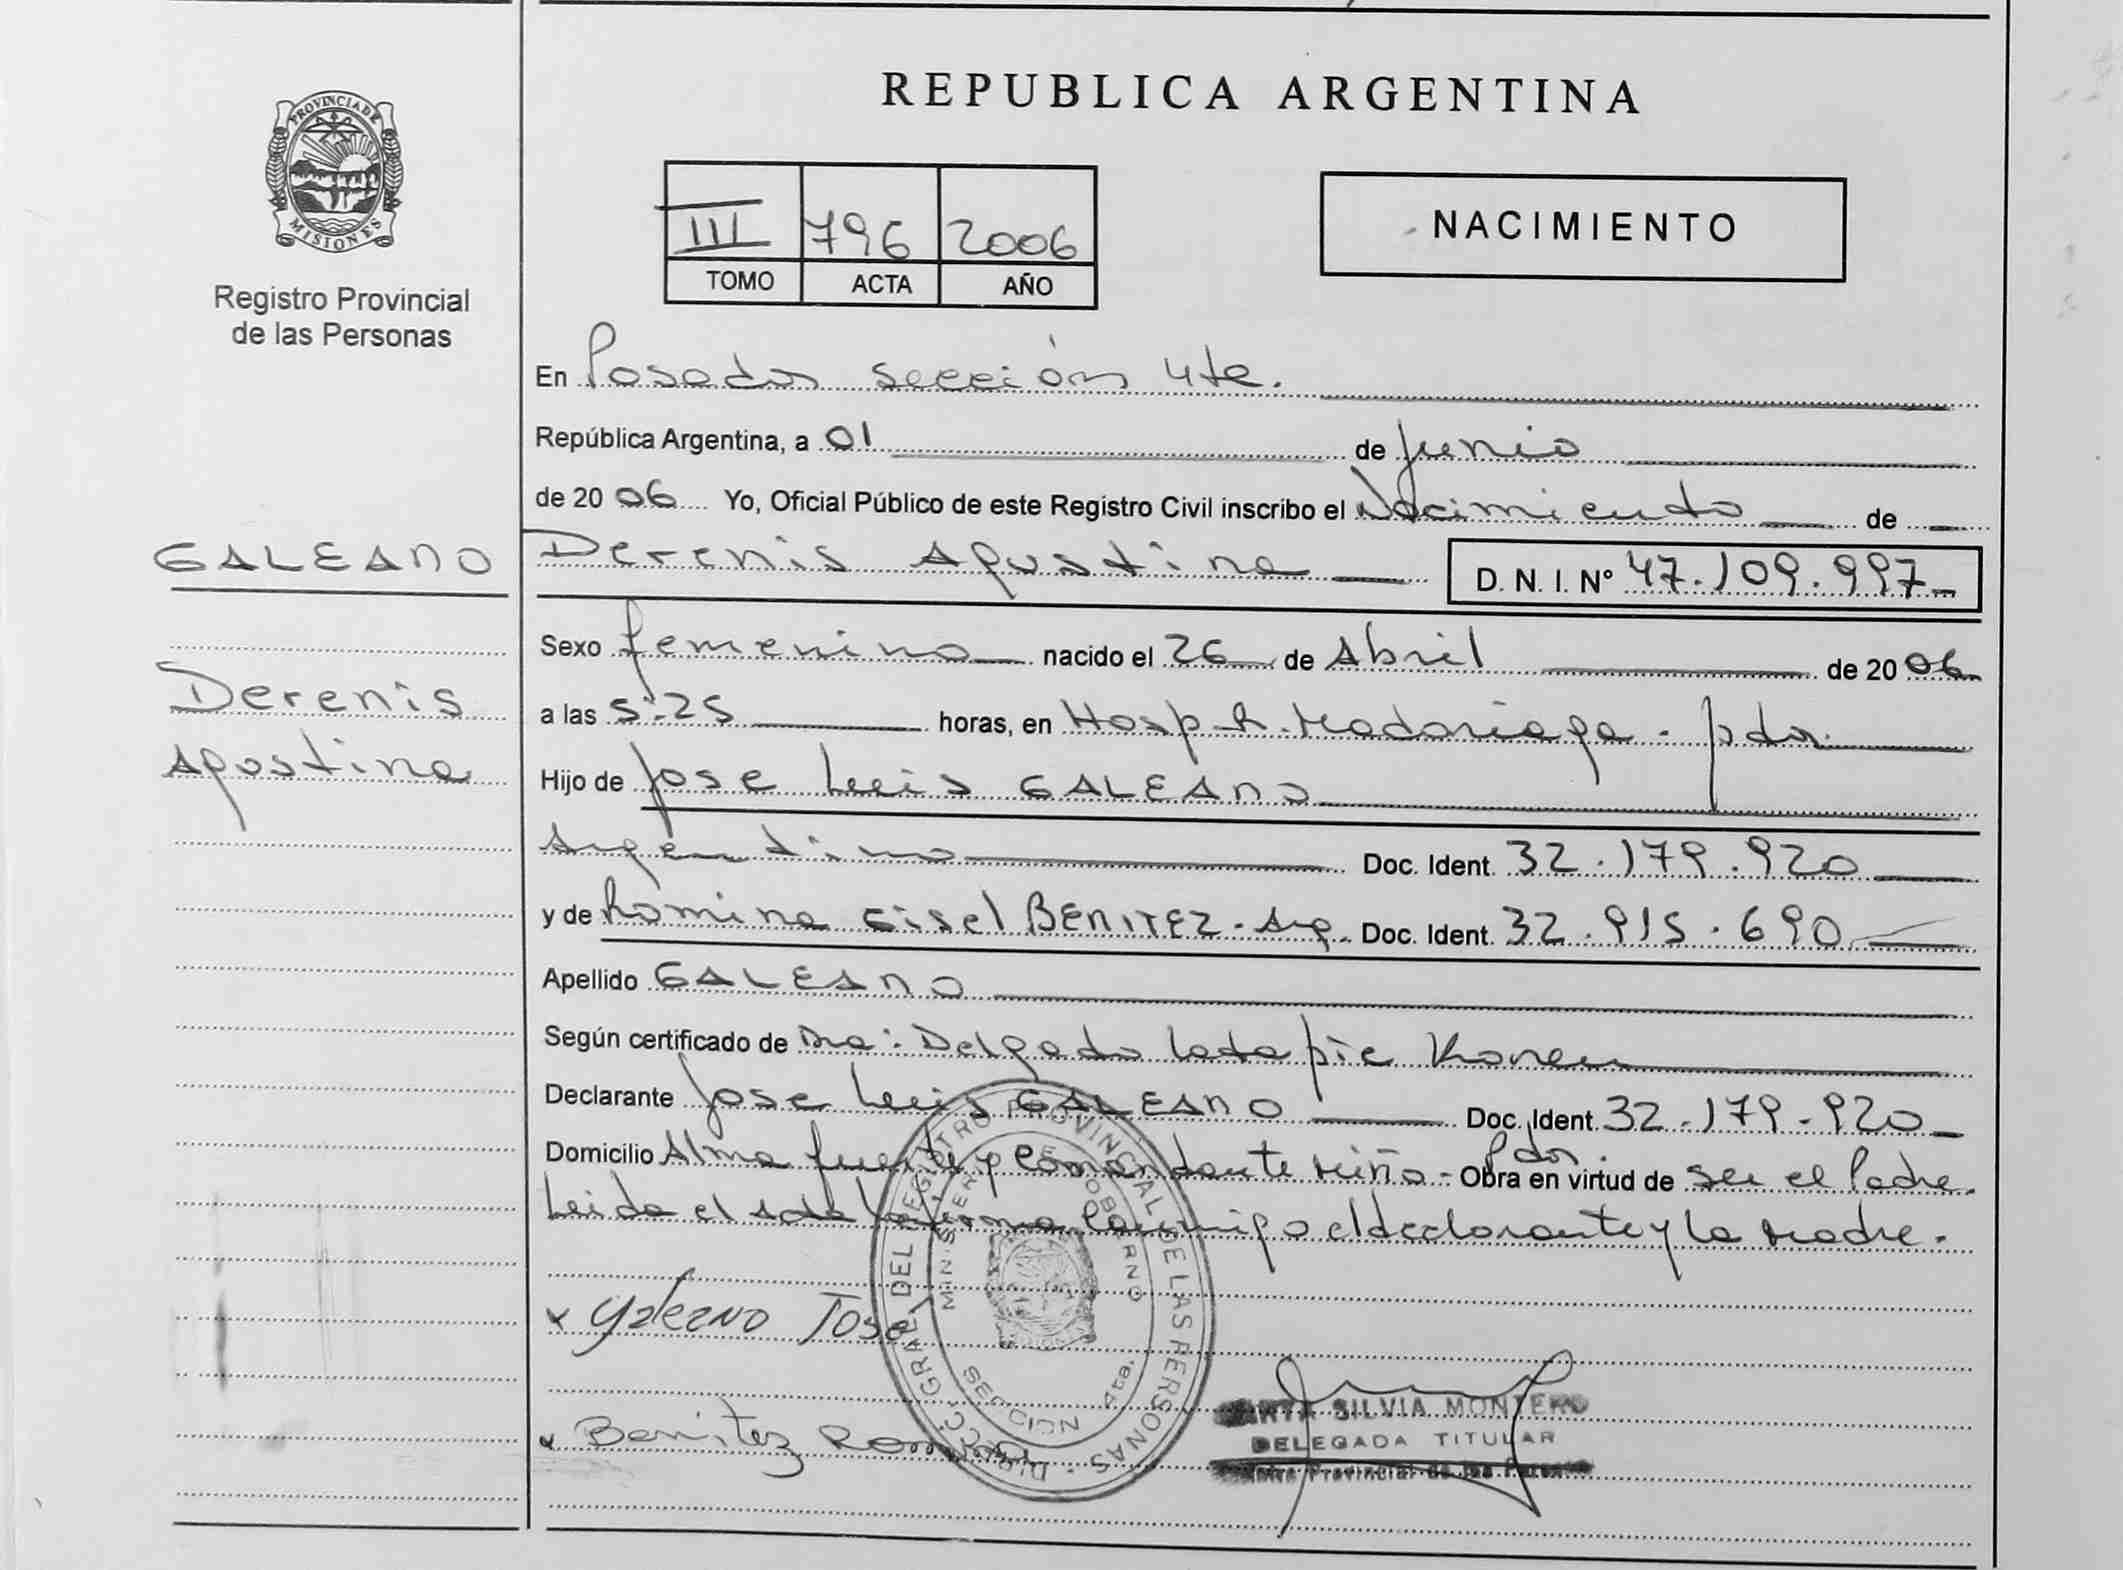 REPUBLICA ARGENTINA
PROVINCIA DE
MISIONES
Registro Provincial
de las Personas
III 796 2006
TOMO ACTA AÑO
NACIMIENTO
En Posadas sección 4ta.
República Argentina, a 01 de Junio
de 20 06 Yo, Oficial Público de este Registro Civil inscribo el Nacimiento de
GALEANO
Derenis Agustina
Derenis Agustina D. N. I. Nº 47.109.997
Sexo femenino nacido el 26 de Abril de 20 06
a las 5:25 horas, en Hosp. R. Madariaga - pdas.
Hijo de Jose Luis GALEANO
Argentino Doc. Ident. 32.179.920
y de Romina Gisel BENITEZ - Arg. Doc. Ident. 32.915.690
Apellido GALEANO
Según certificado de Dra: Delgado Karen
Declarante Jose Luis GALEANO Doc. Ident. 32.179.920
Domicilio Alma fuerte y Comandante Miño - Pdas. Obra en virtud de ser el Padre.
Leida el acta la firman Conmigo el declarante y la Madre.
x Galeano Jose
x Benitez Romina
DIREC. GRAL. DEL REGISTRO PROVINCIAL DE LAS PERSONAS
MINISTERIO DE GOBIERNO
SECCION 4ta.
SILVIA MONTERO
DELEGADA TITULAR
Provincial de las Personas